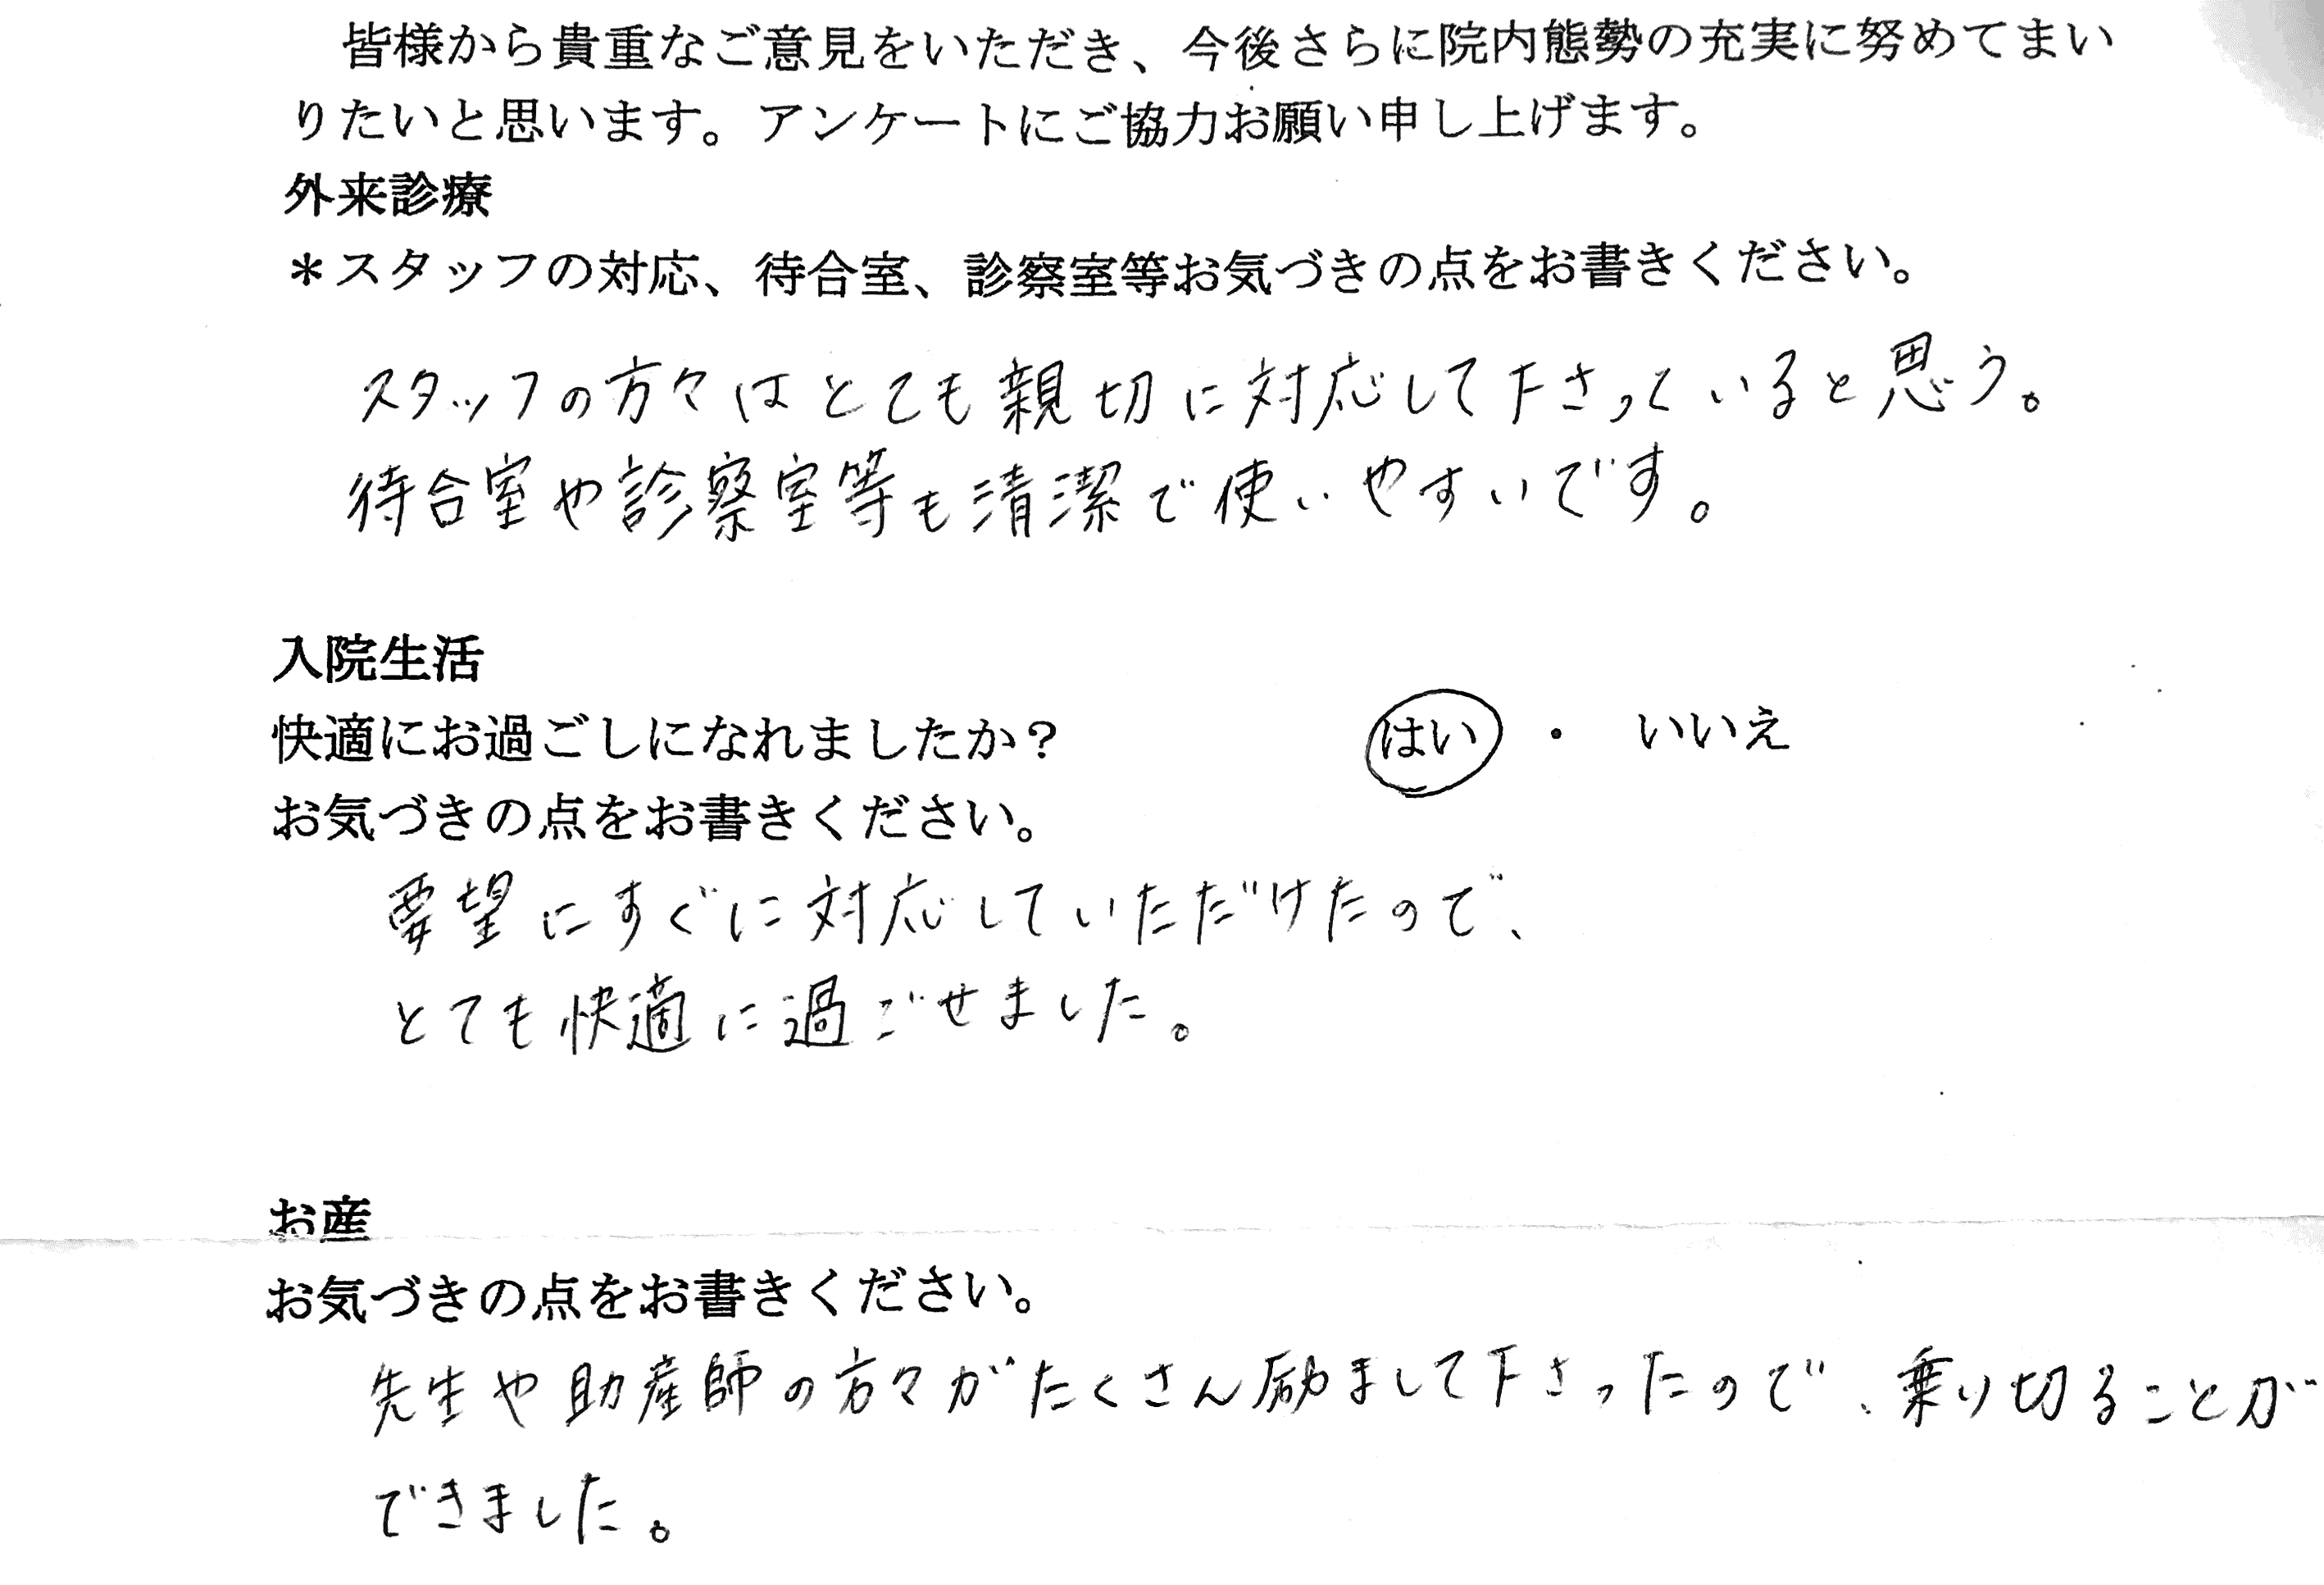 皆様から貴重なご意見をいただき、今後さらに院内態勢の充実に努めてまい
りたいと思います。アンケートにご協力お願い申し上げます。
外来診療
＊スタッフの対応、待合室、診察室等お気づきの点をお書きください。
スタッフの方々はとても親切に対応して下さっていると思う。
待合室や診察室等も清潔で使いやすいです。
入院生活
快適にお過ごしになれましたか？ はい ・ いいえ
お気づきの点をお書きください。
要望にすぐに対応していただけたので、
とても快適に過ごせました。
お産
お気づきの点をお書きください。
先生や助産師の方々がたくさん励まして下さったので、乗り切ることが
できました。